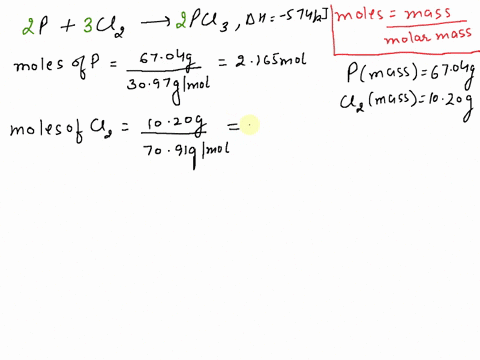 2P + 3Cl2 → 2PCl3, ΔH = -574kJ
moles = mass / molar mass
moles of P = 67.04g / 30.97g/mol = 2.165mol
P(mass) = 67.04g
Cl2(mass) = 10.20g
moles of Cl2 = 10.20g / 70.91g/mol =